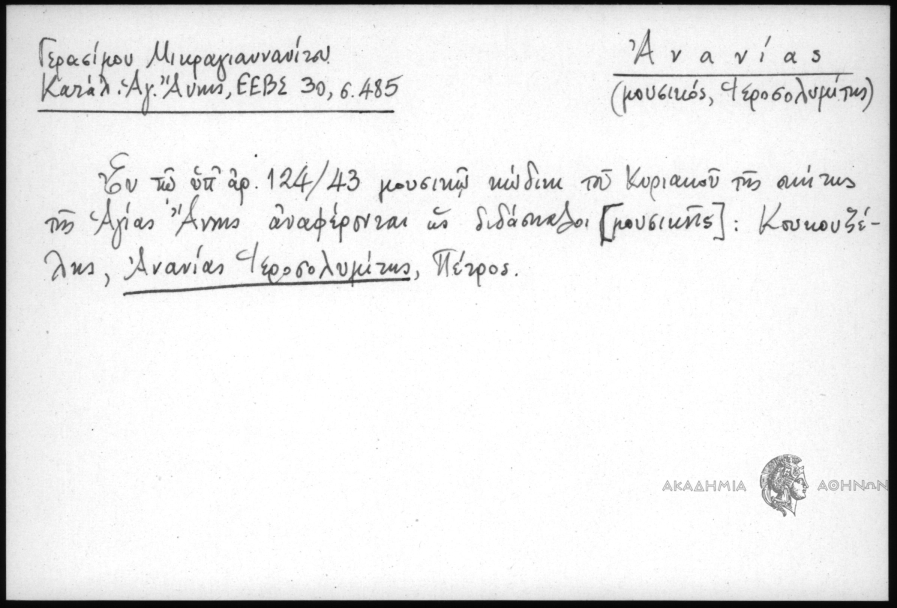 Γερασίμου Μικραγιαννανίτου
Κατάλ. Ἁγ. Ἄννης, ΕΕΒΣ 30, σ. 485
Ἀνανίας
(μουσικός, Ἱεροσολυμίτης)
Ἐν τῷ ὑπ' ἀρ. 124/43 μουσικῷ κώδικι τοῦ Κυριακοῦ τῆς σκήτης
τῆς Ἁγίας Ἄννης ἀναφέρονται ὡς διδάσκαλοι [μουσικῆς]: Κουκουζέ-
λης, Ἀνανίας Ἱεροσολυμίτης, Πέτρος.
ΑΚΑΔΗΜΙΑ ΑΘΗΝΩΝ